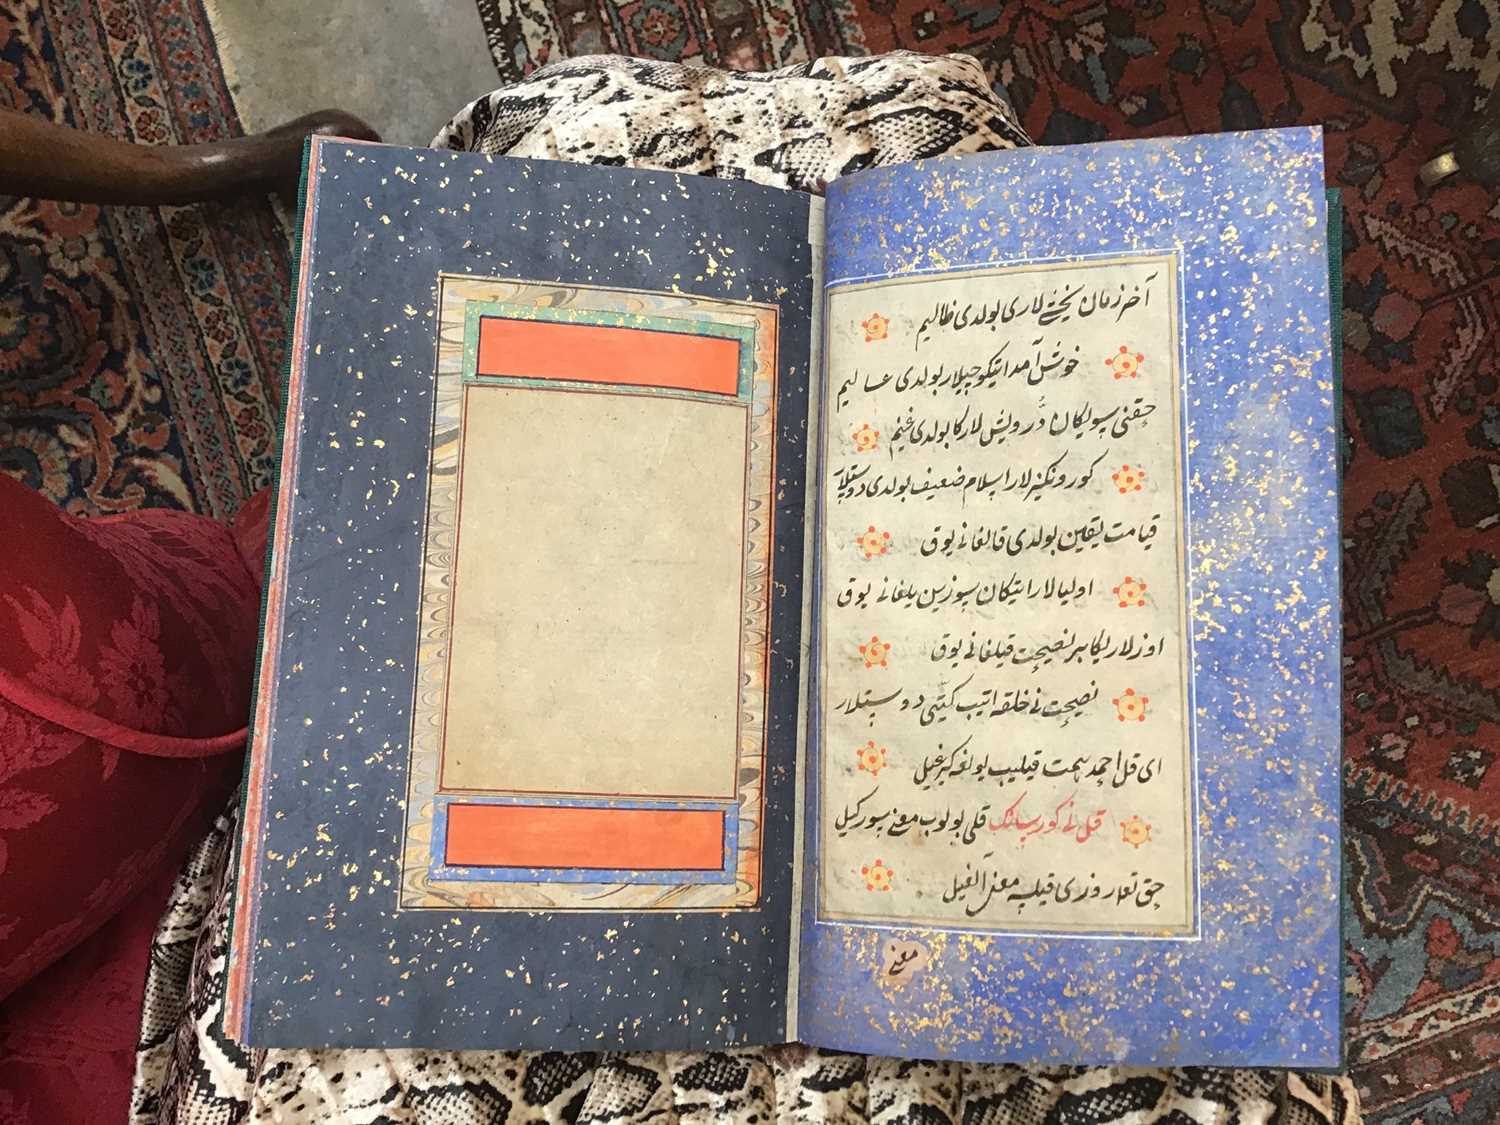 آخر زمان یخشی لاری بولدی ظالیم
خوش آمد ایتکوجیلار بولدی عالیم
حقنی سویکان درویش لارکا بولدی غنیم
کورونکیزلار اسلام ضعیف بولدی دوستلار
قیامت یقین بولدی قالغانی یوق
اولیالار ایتکان سوزین یلغانی یوق
اوزلاریکا بیر نصیحت قیلغانی یوق
نصیحت نی خلقه ایتیب کیتی دوستلار
ای قل احمد سمت قیلیب یولغه کیرغیل
قل نی کورسانک قلی بولوب معنی سورکیل
حق تعا روزی قیلسه معنی آلغیل
معنی